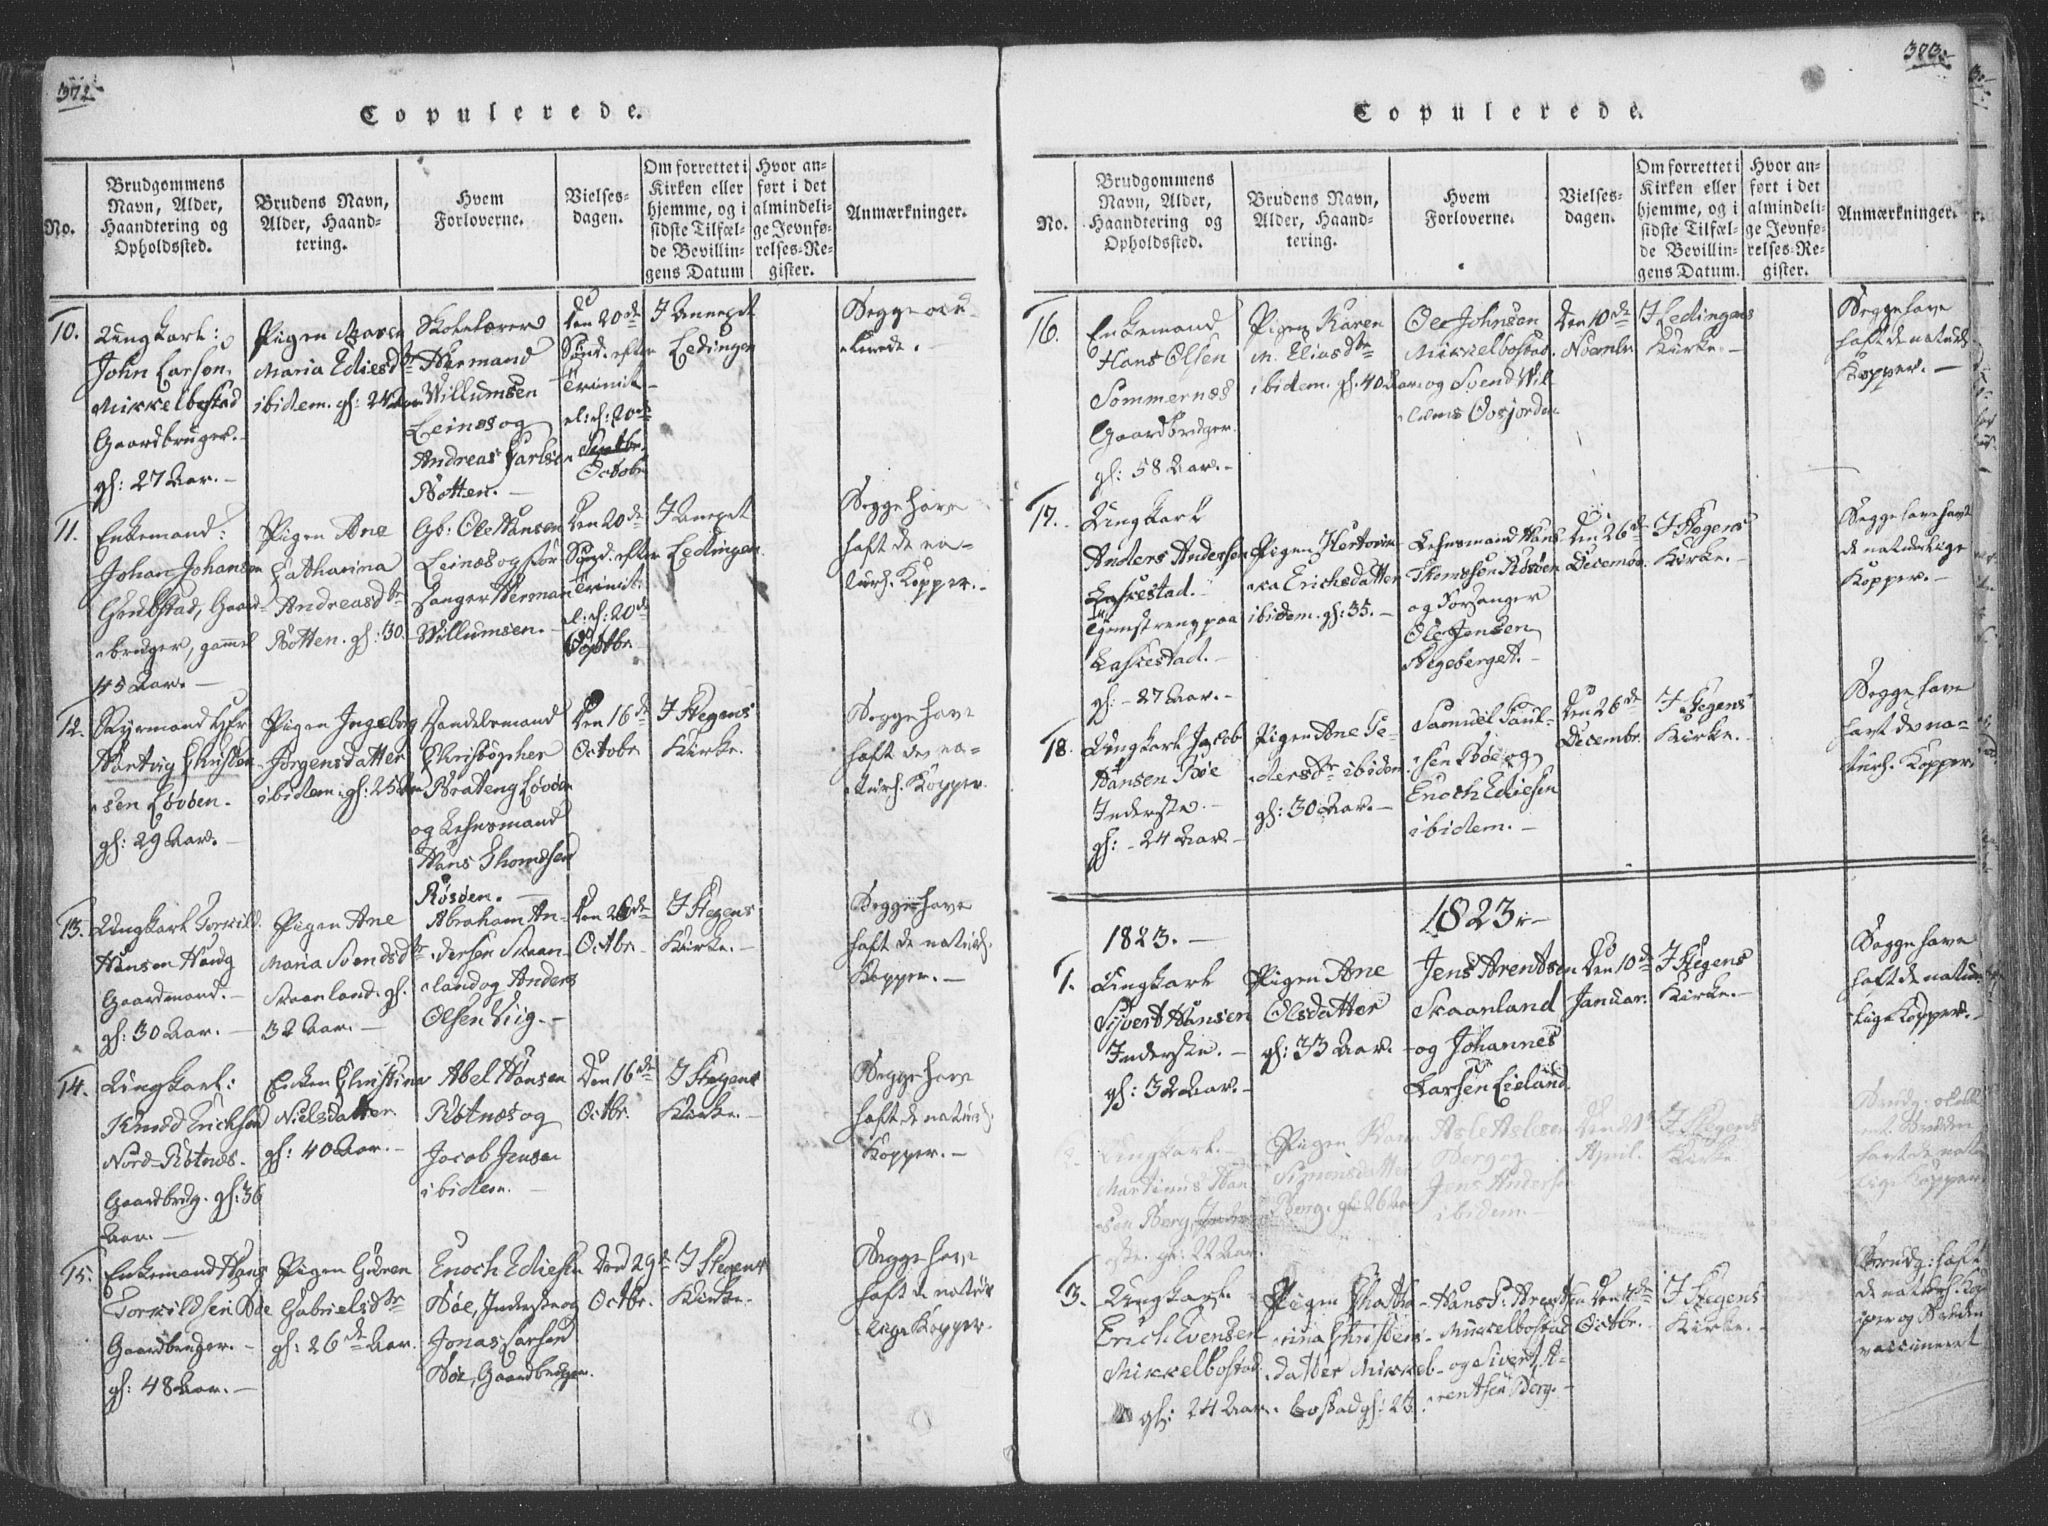 372.
Copulerede.
No.
Brudgommens
Navn, Alder,
Haandtering og
Opholdssted.
Brudens Navn,
Alder, Haand-
tering.
Hvem
Forloverne.
Vielses-
dagen.
Om forrettet i
Kirken eller
hjemme, og i
sidste Tilfæl-
de Bevillin-
gens Datum
Hvor an-
ført i det
almindeli-
ge Jevnfø-
relses-Re-
gister.
Anmærkninger.
10.
Ungkarl:
John Larsen,
Mikkelbostad
Gaardbruger.
gl: 27 Aar. –
Pigen Maren
Maria Ediesdtr
ibidem. gl: 24 Aar
Skolelærer
Hermand
Willumsen
Leines og
Andreas Carlsen
Botten. –
Den 20de
Sønd. efter
Trinit.
el: h: 20de
Octobr
I Annexet
Ledingen
Begge vac-
cinerede. –
11.
Enkemand:
Johan Johansen
Grubstad, Gaard-
bruger, gammel
45 Aar. –
Pigen Ane
Catharina
Andreasdtr
Botten. gl: 30.
Gb: Ole Hansen
Leines og For-
sanger Herman
Willumsen. –
Den 20de
Sønd. efter
Trinit:
el: h: 20de
I Annexet
Ledingen
Begge have
haft de na-
turl. Kopper. –
12.
Hartvig Christen-
sen Løvøen.
gl: 29 Aar. –
Pigen Ingeborg
Jørgensdatter
ibidem. gl: 25 Aar
Handelsmand
Christopher
Brateng Løvøen
og Lehnsmand
Hans Thomesen
Røsøen. –
Den 16de
Octobr.
I Stegens
Kirke. –
Begge have
haft de na-
turl. Kopper.
13.
Ungkarl Torkild
Hansen Haug
Gaardmand. –
gl: 30 Aar. –
Pigen Ane
Maria Svendsdtr
Skaanland. gl.
32 Aar. –
Abraham An-
dersen Skaan-
land og Anders
Olsen Viig. –
Den 26de
Octbr. –
I Stegens
Kirke. –
Begge have
haft de naturl.
Kopper. –
14.
Ungkarl:
Knud Erichsen
Nord-Røtnæs.
Gaardbrug. gl: 36
Aar. –
Enken Christina
Nielsdatter
gl: 40 Aar. –
Abel Hansen
Røtnæs og
Jacob Jensen
ibidem. –
Den 16de
Octbr.
I Stegens
Kirke. –
Begge have
haft de naturl.
Kopper. –
15.
Enkemand Hans
Torkildsen Bøe
Gaardbruger. –
gl: 48 Aar. –
Pigen Guren
Gabrielsdtr
gl: 26de Aar.
Enoch Ediesen
Bøe, Inderste og
Jonas Larsen
Bøe, Gaardbruger.
Den 29de
Octbr. –
I Stegens
Kirke. –
Begge have
haft de natur-
lige Kopper.
Copulerede.
No.
Brudgommens
Navn, Alder,
Haandtering og
Opholdssted.
Brudens Navn,
Alder, Haand-
tering.
Hvem
Forloverne.
Vielses-
dagen.
Om forrettet i
Kirken eller
hjemme, og i
sidste Tilfæl-
de Bevillin-
gens Datum.
Hvor an-
ført i det
almindeli-
ge Jevnfø-
relses-Re-
gister.
Anmærkninger.
16.
Enkemand
Hans Olsen
Sommernæs
Gaardbruger
gl: 58 Aar. –
Pigen Karen
M. Eliasdtr
ibidem. gl. 40 Aar
Ole Johnsen
Mikkelbostad
og Svend Wil-
Den 10de
Novembr
I Ledingens
Kirke. –
Begge have
haft de naturl
Kopper. –
17.
Ungkarl
Anders Andersen
Laskestad. –
paa
Laskestad. –
gl: – 27 Aar. –
Pigen
Erichsdatter
ibidem. gl: 35. –
Lehnsmand Hans
Thomesen Røsøen
og Forsanger
Ole Jensen
Den 26de
Decembr.
I Stegens
Kirke. –
Begge have havt
de naturlige
Kopper. –
18.
Ungkarl Jacob
Hansen Bøe
Inderste. –
gl: – 24 Aar. –
Pigen Ane Pe-
dersdtr ibidem
gl: 30 Aar. –
Samuel Paul-
sen Bøe og
Enoch Ediesen
ibidem. –
Den 26de
Decembr.
I Stegens
Kirke. –
Begge have
haft de na-
turl. Kopper.
1823. –
1823. –
1.
Ungkarl
Sivert Hansen
Inderste. –
gl: 32 Aar. –
Pigen Ane
Olsdatter
gl: 33 Aar. –
Jens Arentsen
Skaanland
og Johannes
Larsen Eieland
Den 10de
Januar.
I Stegens
Kirke. –
Begge have
haft de natur-
lige Kopper. –
Ungkarl. –
Martinus Han-
sen Berg, Inder-
ste. gl: 22 Aar.
Pigen
Simonsdatter
Berg. gl: 26 Aar
Asle Aslesen
Berg og
Jens Andersen
ibidem. –
April.
I Stegens
Kirke.
haft de natur-
lige Kopper
3.
Ungkarl.
Erich Evensen
Mikkelbostad.
gl: 24 Aar.
Pigen Chatha-
rina Christens-
datter Mikkel-
bostad gl: 23.
Hans P. Arentsen
Mikkelbostad
og Sivert A-
rentsen Berg. –
Octbr. –
I Stegens
Kirke. –
Brudg: haft
de naturl. Kop-
per og Bruden
vaccineret